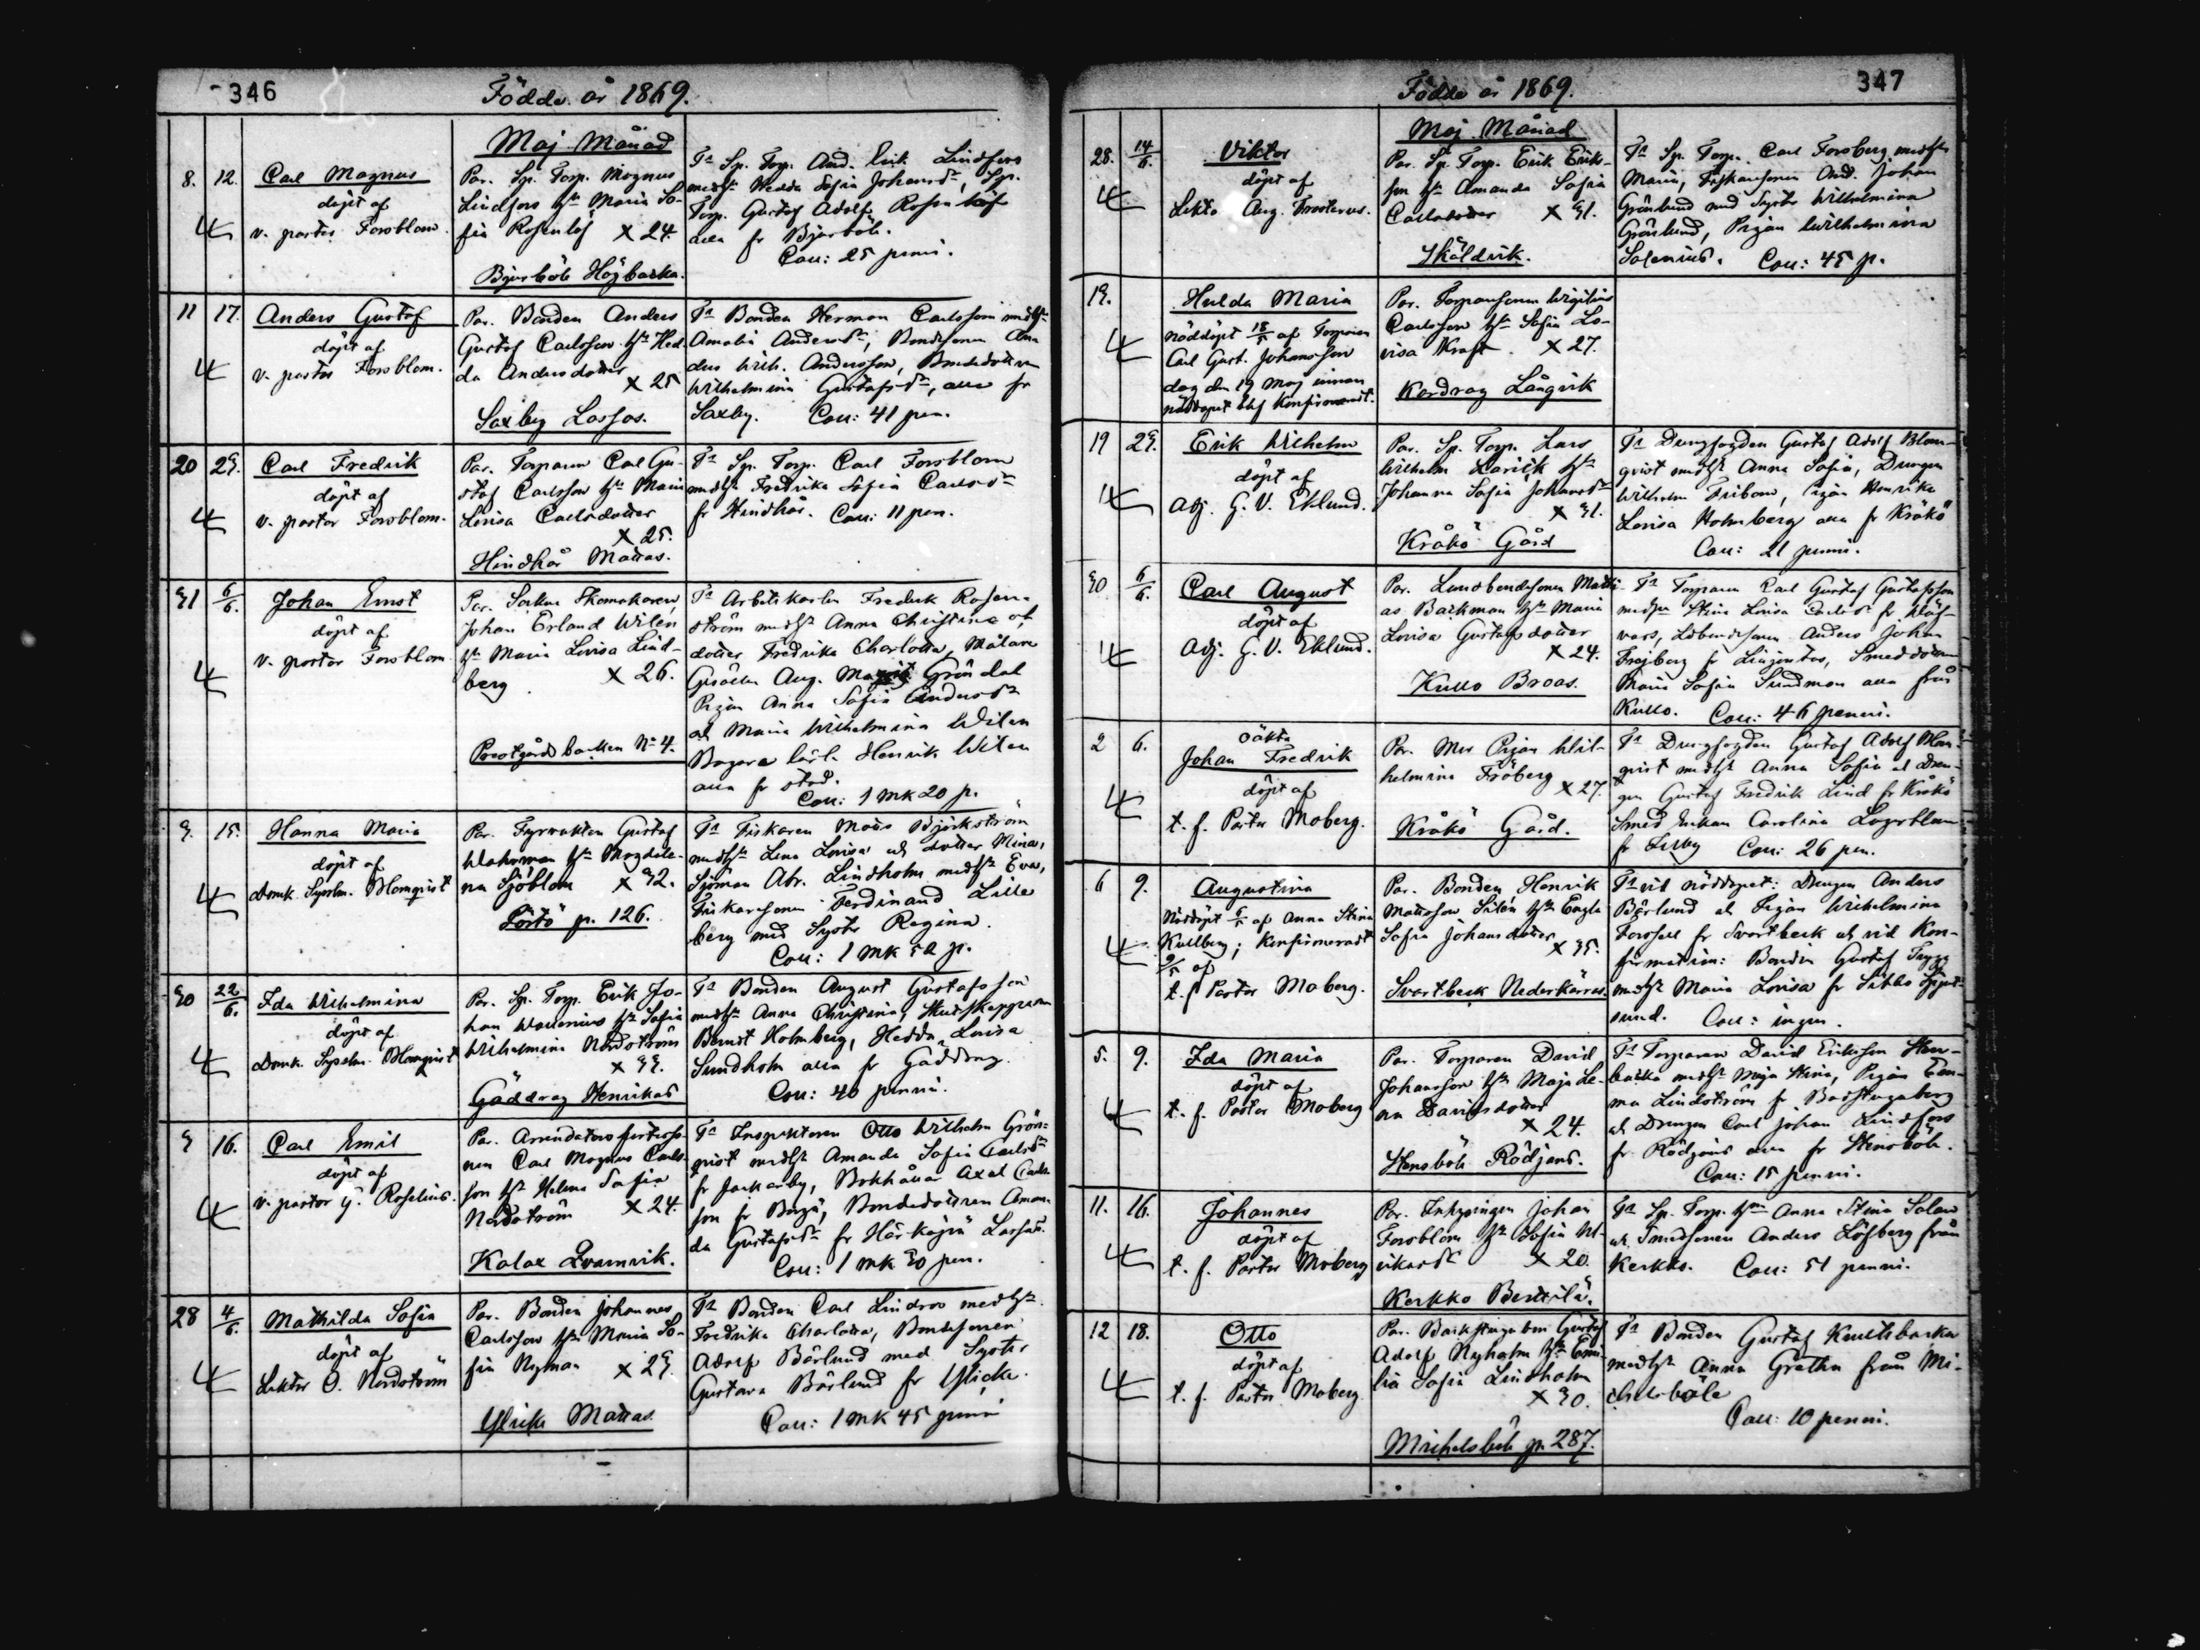 346
Födde år 1869.
Maj Månad
8. 12. Carl Magnus
döpt af
v. pastor Forsblom.
Par. Sp. Torp. Magnus
Lindfors hu Maria So-
fia Rosenlöf × 24.
Bjurböle Högbacka.
Ts Sp. Torp. And. Erik Lindfors
medh Hedda Sofia Johansdr, Sp.
Torp. Gustaf Adolf Rosenlöf
alla fr Bjurböle.
Coll: 25 penni.
11 17. Anders Gustaf
döpt af
v. pastor Forsblom.
Par. Bonden Anders
Gustaf Carlsson hu Hed-
da Andersdotter
× 25
Saxby Lassas.
Ts Bonden Herman Carlsson medh
Amalia Andersdr, Bondesonen An-
ders Wilh. Andersson, Bondedottren
Wilhelmina Gustafsdr, alla fr
Saxby. Coll: 41 pen.
20 29. Carl Fredrik
döpt af
v. pastor Forsblom.
Par. Torparen Carl Gu-
staf Carlsson hu Maria
Lovisa Carlsdotter
× 25.
Hindhår Mattas.
Ts Sp. Torp. Carl Forsblom
medh Fredrika Sofia Carlsdr
fr Hindhår. Coll: 11 pen.
31 6/6. Johan Ernst
döpt af
v. pastor Forsblom
Par. Sockne Skomakaren
Johan Erland Wilen
hu Maria Lovisa Lind-
berg × 26.
Prostgårds backen No 4.
Ts Arbetskarlen Fredrik Rosen-
ström medh Anna Christina o
dotter Fredrika Charlotta, Målare
Gesällen Aug. Gröndal
Pigan Anna Sofia Andersdr
o Maria Wilhelmina Wilen
Bagare lärl. Henrik Wilen
alla fr stad.
Coll: 1 mk 20 p.
3. 15. Hanna Maria
döpt af
Domk. Syssлm. Blomqvist
Par. Fyrvaktaren Gustaf
Wahrman hu Magdale-
na Sjöblom × 32.
p. 126.
Ts Fiskaren Matts Björkström
medh Lena Lovisa o dotter Mina,
Sjöman Abr. Lindholm medh Eva,
Fiskaresonen Ferdinand Lille
berg med Syster Regina.
Coll: 1 mk 50 p.
30 22/6. Ida Wilhelmina
döpt af
Domk. Sysslm. Blomqvist
Par. Sp. Torp. Erik Jo-
han Wallenius hu Sofia
Wilhelmina Nordström
× 33.
Gäddrag Henrikas
Ts Bonden August Gustafsson
medh Anna Christina, Skutskepparen
Berndt Holmberg, Hedda Lovisa
Sundholm alla fr Gäddrag.
Coll: 40 penni.
3 16. Carl Emil
döpt af
v. pastor G. Roselius.
Par.
Carl Magnus Carls-
son hu Helena Sofia
Nordström × 24.
Kalax Qvarnvik.
Ts Inspektoren Otto Wilhelm Grön-
qvist medh Amanda Sofia Carlsdr
fr Jackarby, Bokhållar Axel Carls-
son fr Borgå, Bondedottren Aman-
da Gustafsdr fr Härkäpä Lassas.
Coll: 1 mk 30 pen.
28 4/6. Mathilda Sofia
döpt af
Lektor O. Nordström
Par. Bonden Johannes
Carlsson hu Maria So-
fia Nyman × 29
Ylike Mattas.
Ts Bonden Carl Lindroos medh
Fredrika Charlotta, Bondesonen
Adolf Bärlund med Syster
Gustava Bärlund fr Ylicke.
Coll: 1 mk 45 penni
Födde år 1869.
347
Maj Månad
28. 14/6. Viktor
döpt af
Lektor Aug. Frosterus.
Par. Sp. Torp. Erik Eriks-
son hu Amanda Sofia
Carlsdotter × 31.
Sköldvik.
Ts Sp. Torp. Carl Forsberg medh
Maria, And. Johan
Grönlund med Syster Wilhelmina
Grönlund, Pigan Wilhelmina
Salenius. Coll: 45 p.
19. Hulda Maria
Nöddöpt 18/5 af Torparen
Carl Gust. Johansson
dog den 19 Maj innan
nöddopet blef Konfirmeradt.
Par. Torparesonen Wigilius
Carlsson hu Sofia Lo-
visa Kraft. × 27.
Kardrag Långvik
19 29. Erik Wilhelm
döpt af
Adj. G. V. Eklund.
Par. Sp. Torp. Lars
Wilhelm Larick hu
Johanna Sofia Johansdr
× 31.
Kråkö Gård
Ts Drengfogden Gustaf Adolf Blom-
qvist medh Anna Sofia, Drengen
Wilhelm Fribom, Pigan Henrika
Lovisa Holmberg alla fr Kråkö
Coll: 21 penni.
30 6/6. Carl August
döpt af
Adj. G. V. Eklund.
Par. Landbondesonen Matthi-
as Backman hu Maria
Lovisa Gustafsdotter
× 24.
Kullo Broas.
Ts Torparen Carl Gustaf Gustafsson
medh Stina Lovisa fr
Anders Johan
Frejberg fr Smeddottren
Maria Sofia Sundman alla från
Kullo. Coll: 46 penni.
2 6. oäkta
Johan Fredrik
döpt af
t. f. Pastor Moberg.
Par. Mor Pigan Wil-
helmina Fröberg × 27.
Kråkö Gård.
Ts Drengfogden Gustaf Adolf Blom-
qvist medh Anna Sofia o Dren-
gen Gustaf Fredrik Lind fr Kråkö
Smed Enkan Carolina Lagerblom
fr Coll: 26 pen.
6 9. Augustina
Nöddöpt 6/5 af Anna Stina
Kullberg; Konfirmeradt
9/5 af
t. f. Pastor Moberg.
Par. Bonden Henrik
Mattsson Silén hu Engla
Sofia Johansdotter
× 35.
Svartbeck Nederkärras.
Ts vid nöddopet: Drengen Anders
Bärlund o Pigan Wilhelmina
Forssell fr Svartbeck o vid Kon-
firmation: Bonden Gustaf Trygg
medh Maria Lovisa fr Sibbo Spjut-
sund. Coll: ingen.
5. 9. Ida Maria
döpt af
t. f. Pastor Moberg
Par. Torparen David
Johansson hu Maja Le-
na Davidsdotter
× 24.
Stensböle Rödjans.
Ts Torparen David Eriksson Sten-
backa medh Maja Stina, Pigan Em-
ma Lindström fr Badstugaberg
o Drengen Carl Johan Lindfors
fr Rödjans alla fr Stensböle.
Coll: 15 penni.
11. 16. Johannes
döpt af
t. f. Pastor Moberg
Par. Inhysingen Johan
Forsblom hu Sofia
× 20.
Kerkko Bertilä.
Ts Sp. Torp. hu Anna Stina
o Smedsonen Anders Löfberg från
Kerkko. Coll: 51 penni.
12 18. Otto
döpt af
t. f. Pastor Moberg.
Par. Backstugubon Gustaf
Adolf Nyholm hu Emi-
lia Sofia Lindholm
× 30.
Michelsböle p. 287.
Ts Bonden Gustaf Knutsbacka
medh Anna Gretha från Mi-
chelsböle
Coll: 10 penni.